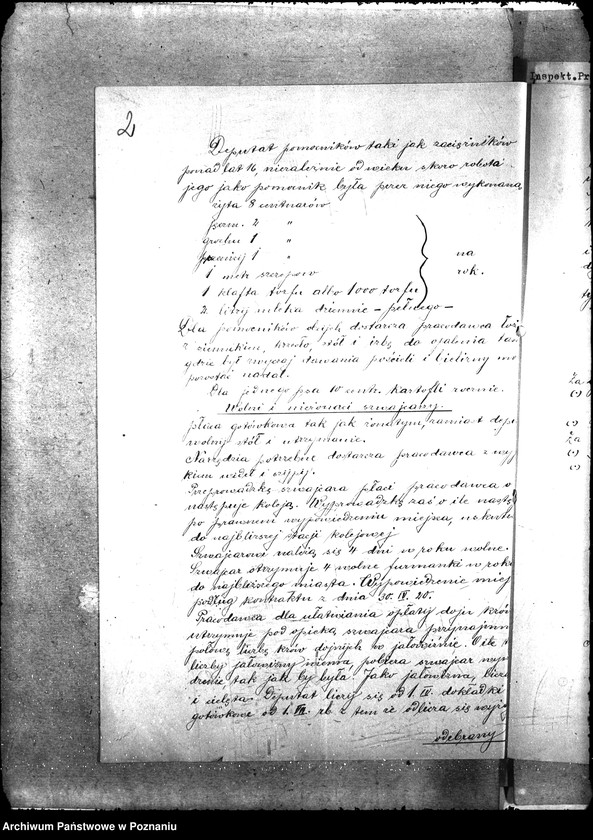 2
Inspekt.Pr
Deputat pomocników taki jak zaciężników
ponad lat 16, niezależnie od wieku skoro robota
jego jako pomocnik była przez niego wykonana
żyta 8 centnarów
jęczm. 2 "
grochu 1 "
pszenicy 1 "
1 metr szczepów
1 klafta torfu albo 1000 torfu
na
rok.
2 litry mleka dziennie – pełnego –
Dla pomocników obcych dostarcza pracodawca
z siennikiem, krzesło, stół i izbę do opalenia tam
gdzie był zwyczaj dawania pościeli i bielizny
pozostać nadal.
Dla jednego psa 10 cntr. kartofli rocznie.
Wolni i nieżonaci szwajcarzy.
płaca gotówkowa tak jak żonatym, zamiast dep
wolny stół i utrzymanie.
Narzędzia potrzebne dostarcza pracodawca z
wideł i
Przeprowadzkę szwajcara płaci pracodawca o
nastąpuje koleją. Wyprowadzkę zaś o ile nastą
po prawnem wypowiedzeniu miejsca,
do najbliższej stacji kolejowej
Szwajcarowi należą się 4 dni w roku wolne.
Szwajcar otrzymuje 4 wolne furmanki w roku
do najbliższego miasta. Wypowiedzenie miej
podług kontraktu z dnia 30. IV. 20.
Pracodawca dla ułatwiania opłaty doju krów
utrzymuje pod opieką szwajcara przynajmn
połowę liczby krów dojnych w jałowiznie. O ile
liczby jałowizny niema, pobiera szwajcar wyn
drenie tak jak by była. Jako jałowizna, licz
i cielęta. Deputat liczy się od 1. IV. dokładki
gotówkowe od 1. VII. rb. z tem że odlicza się
odebrany
Za
(-)
(-)
Za
(-)
(-)
Archiwum Państwowe w Poznaniu